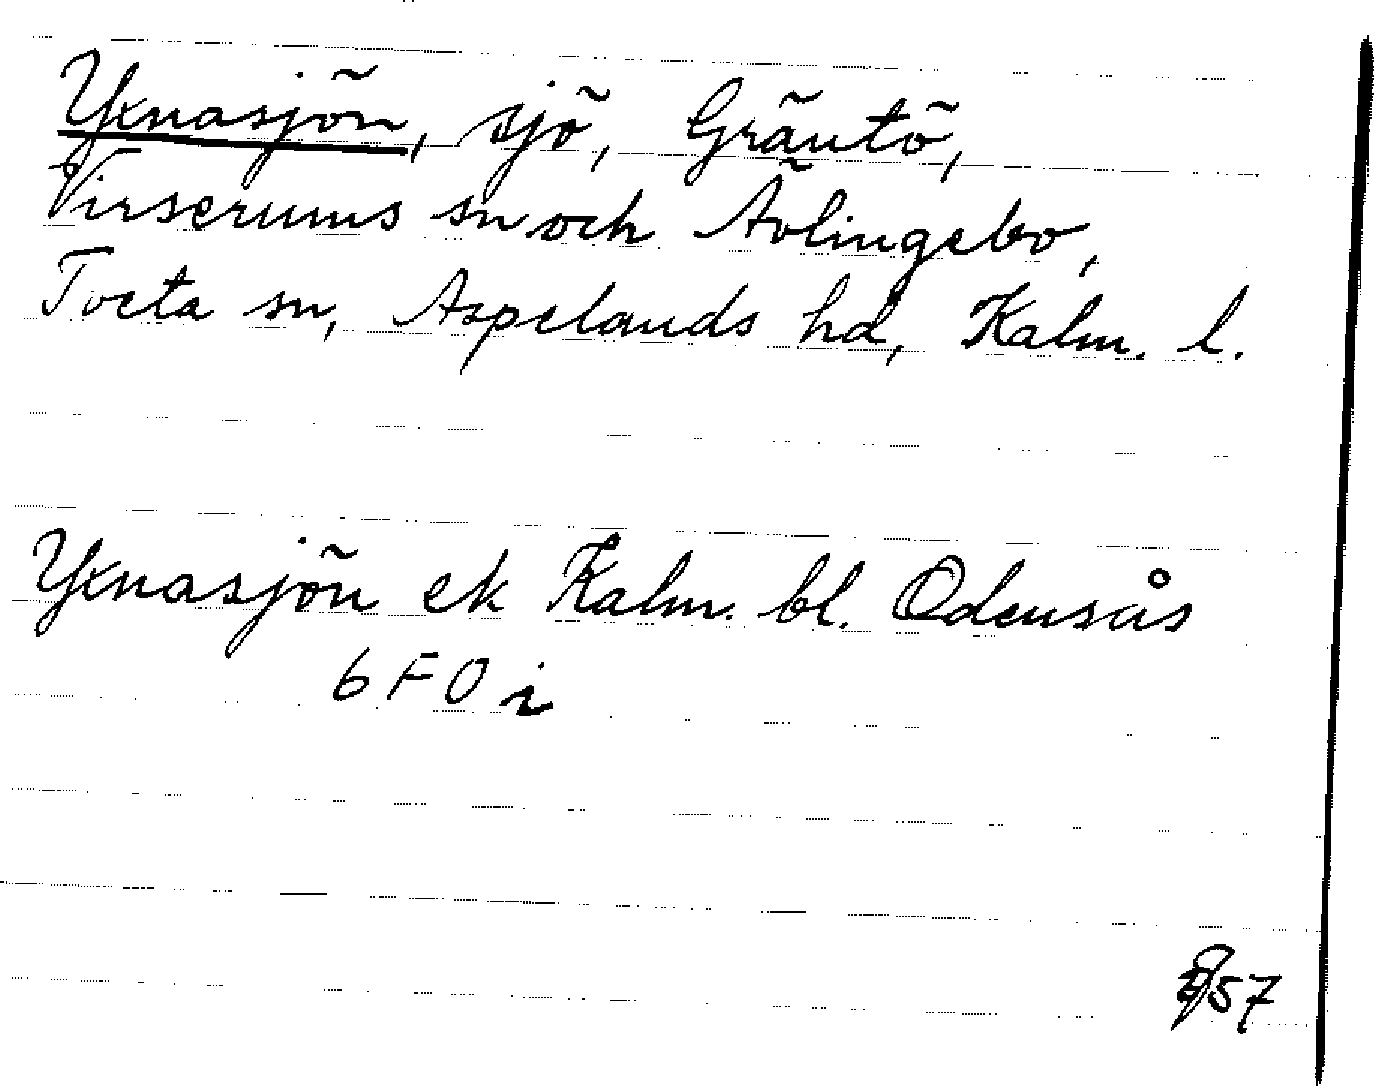 Yxnasjön, sjö, Gräntö,
Virserums sn och Ävlingebo,
Tveta sn, Aspelands hd, Kalm. l.
Yxnasjön ek Kalm. bl. Odensås
6F0i
57